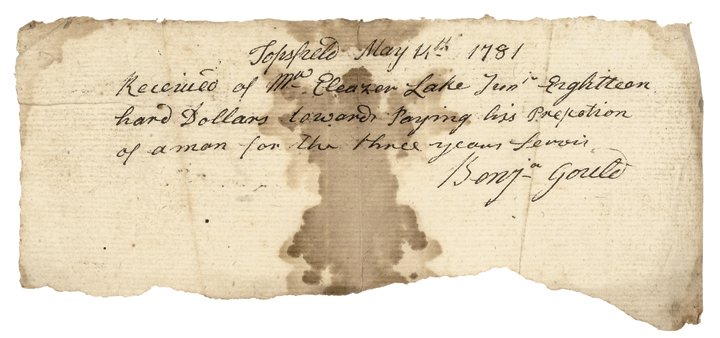 Topsfield May 14th 1781
Received of Mr. Eleazer Lake Junr Eighteen
hard Dollars towards Paying his Prepotion
of a man for the three years Servis
Benja Gould